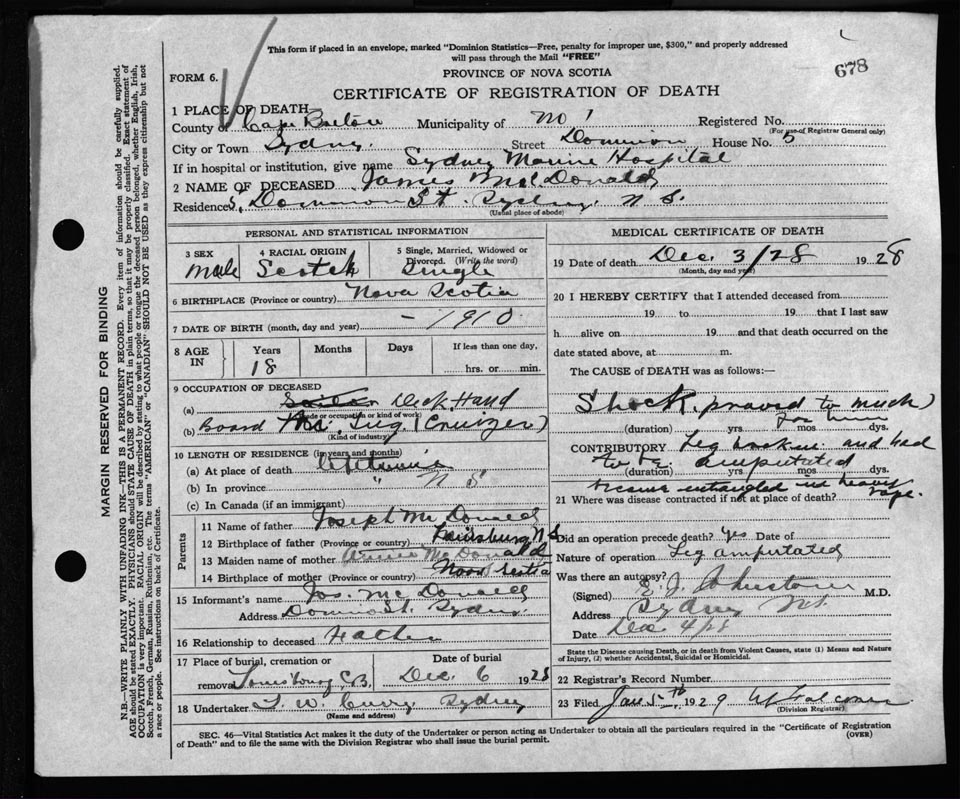 This form if placed in an envelope, marked "Dominion Statistics—Free, penalty for improper use, $300," and properly addressed
will pass through the Mail "FREE"
678
FORM 6.
PROVINCE OF NOVA SCOTIA
CERTIFICATE OF REGISTRATION OF DEATH
1 PLACE OF DEATH
County of Cape Breton Municipality of No 1 Registered No.
(For use of Registrar General only)
City or Town Sydney. Street Dominion House No. 5
If in hospital or institution, give name Sydney Marine Hospital
2 NAME OF DECEASED James McDonald
Residence 5, Dominion St. Sydney. N. S.
(Usual place of abode)
PERSONAL AND STATISTICAL INFORMATION
3 SEX Male
4 RACIAL ORIGIN Scotch
5 Single, Married, Widowed or Divorced. (Write the word) Single
6 BIRTHPLACE (Province or country) Nova Scotia
7 DATE OF BIRTH (month, day and year) – 1910
8 AGE IN Years 18 Months Days If less than one day, hrs. or min.
9 OCCUPATION OF DECEASED
(a) Sailor Deck Hand
(Trade or occupation or kind of work)
(b) Board Tug (Cruizer)
(Kind of industry)
10 LENGTH OF RESIDENCE (in years and months)
(a) At place of death
(b) In province " N S
(c) In Canada (if an immigrant)
Parents
11 Name of father Joseph McDonald
12 Birthplace of father (Province or country) Louisburg N S
13 Maiden name of mother Annie McDonald
14 Birthplace of mother (Province or country) Nova Scotia
15 Informant's name Jos. McDonald
Address Dominion St. Sydney
16 Relationship to deceased Father
17 Place of burial, cremation or removal Louisbourg C.B. Date of burial Dec. 6 1928
18 Undertaker T. W. Curry Sydney
(Name and address)
MEDICAL CERTIFICATE OF DEATH
19 Date of death Dec. 3/28 1928
(Month, day and year)
20 I HEREBY CERTIFY that I attended deceased from
19 to 19 that I last saw
h alive on 19 and that death occurred on the
date stated above, at m.
The CAUSE of DEATH was as follows:—
Shock, proved to much
for him
(duration) yrs mos dys.
CONTRIBUTORY Leg broken and had
to be amputated
(duration) yrs mos dys.
became entangled in heavy rope.
21 Where was disease contracted if not at place of death?
Did an operation precede death? Yes Date of
Nature of operation Leg amputated
Was there an autopsy?
(Signed) E. J. Johnstone M.D.
Address Sydney NS.
Date Dec 4/28
State the Disease causing Death, or in death from Violent Causes, state (1) Means and Nature
of Injury, (2) whether Accidental, Suicidal or Homicidal.
22 Registrar's Record Number
23 Filed Jan 5th 1929 Falconer
(Division Registrar)
SEC. 46—Vital Statistics Act makes it the duty of the Undertaker or person acting as Undertaker to obtain all the particulars required in the "Certificate of Registration
of Death" and to file the same with the Division Registrar who shall issue the burial permit.
(OVER)
MARGIN RESERVED FOR BINDING
N.B.—WRITE PLAINLY WITH UNFADING INK—THIS IS A PERMANENT RECORD. Every item of information should be carefully supplied.
AGE should be stated EXACTLY. PHYSICIANS should STATE CAUSE OF DEATH in plain terms, so that it may be properly classified. Exact statement of
OCCUPATION is very important. RACIAL ORIGIN will be described by stating to what people or tongue the deceased person belonged, whether English, Irish,
Scotch, French, German, Russian, Ruthenian, etc. The terms "AMERICAN" or "CANADIAN" SHOULD NOT BE USED as they express citizenship but not
a race or people. See instructions on back of Certificate.